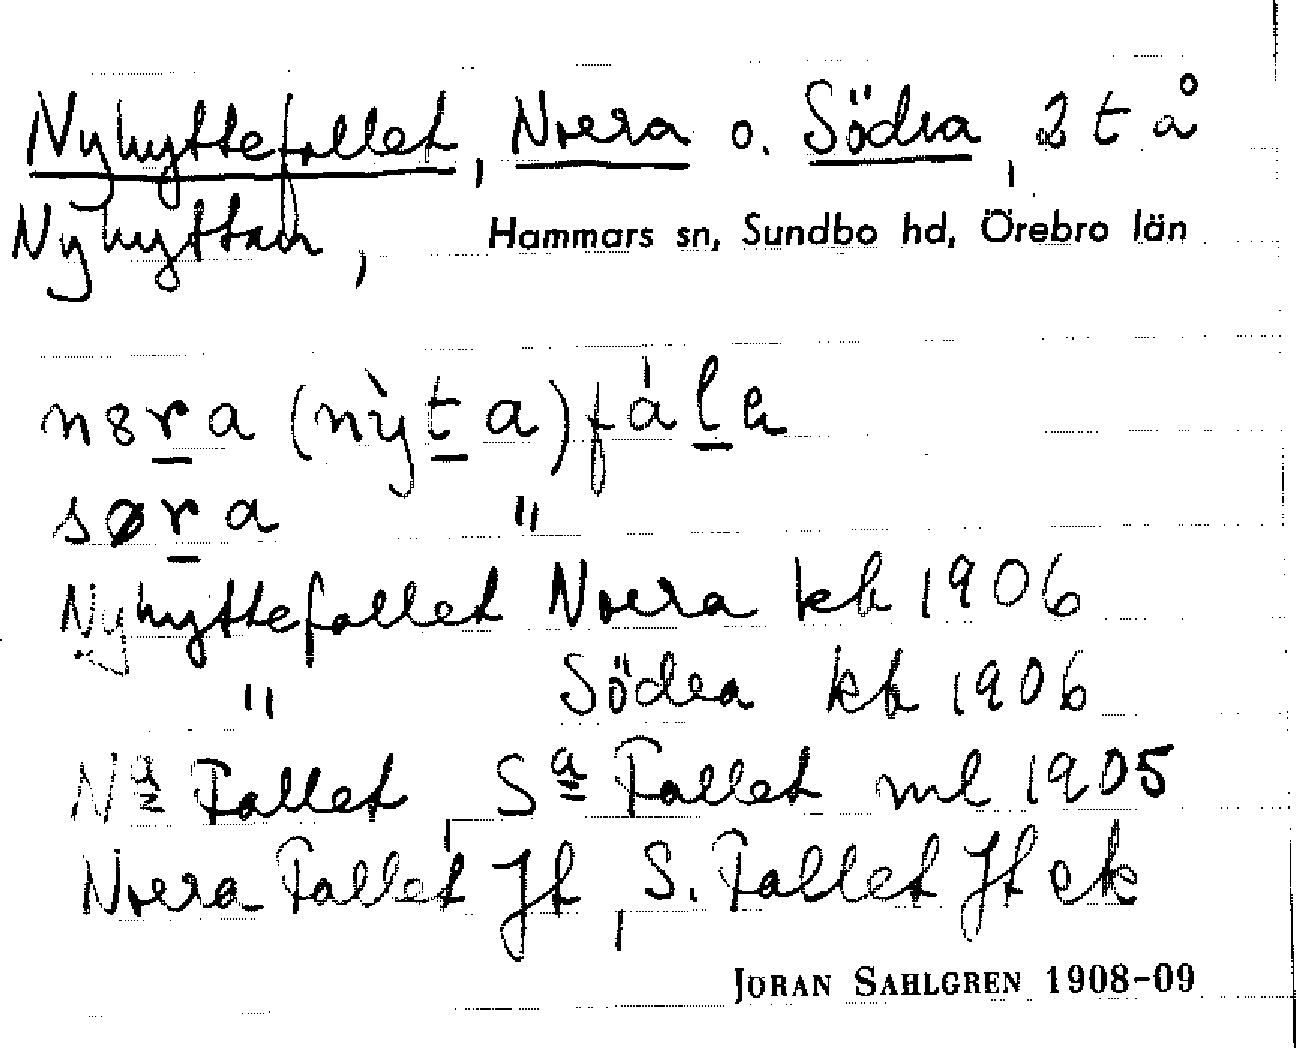 Nyhyttefallet, Norra o. Södra, 2 t å
Nyhyttan, Hammars sn, Sundbo hd, Örebro län
n8ra (nỳta)fála
søra "
Nyhyttefallet Norra kb 1906
" Södra kb 1906
Na Fallet, Sa Fallet ml 1905
Norra Fallet Jk, S. Fallet Jk ek
JÖRAN SAHLGREN 1908-09